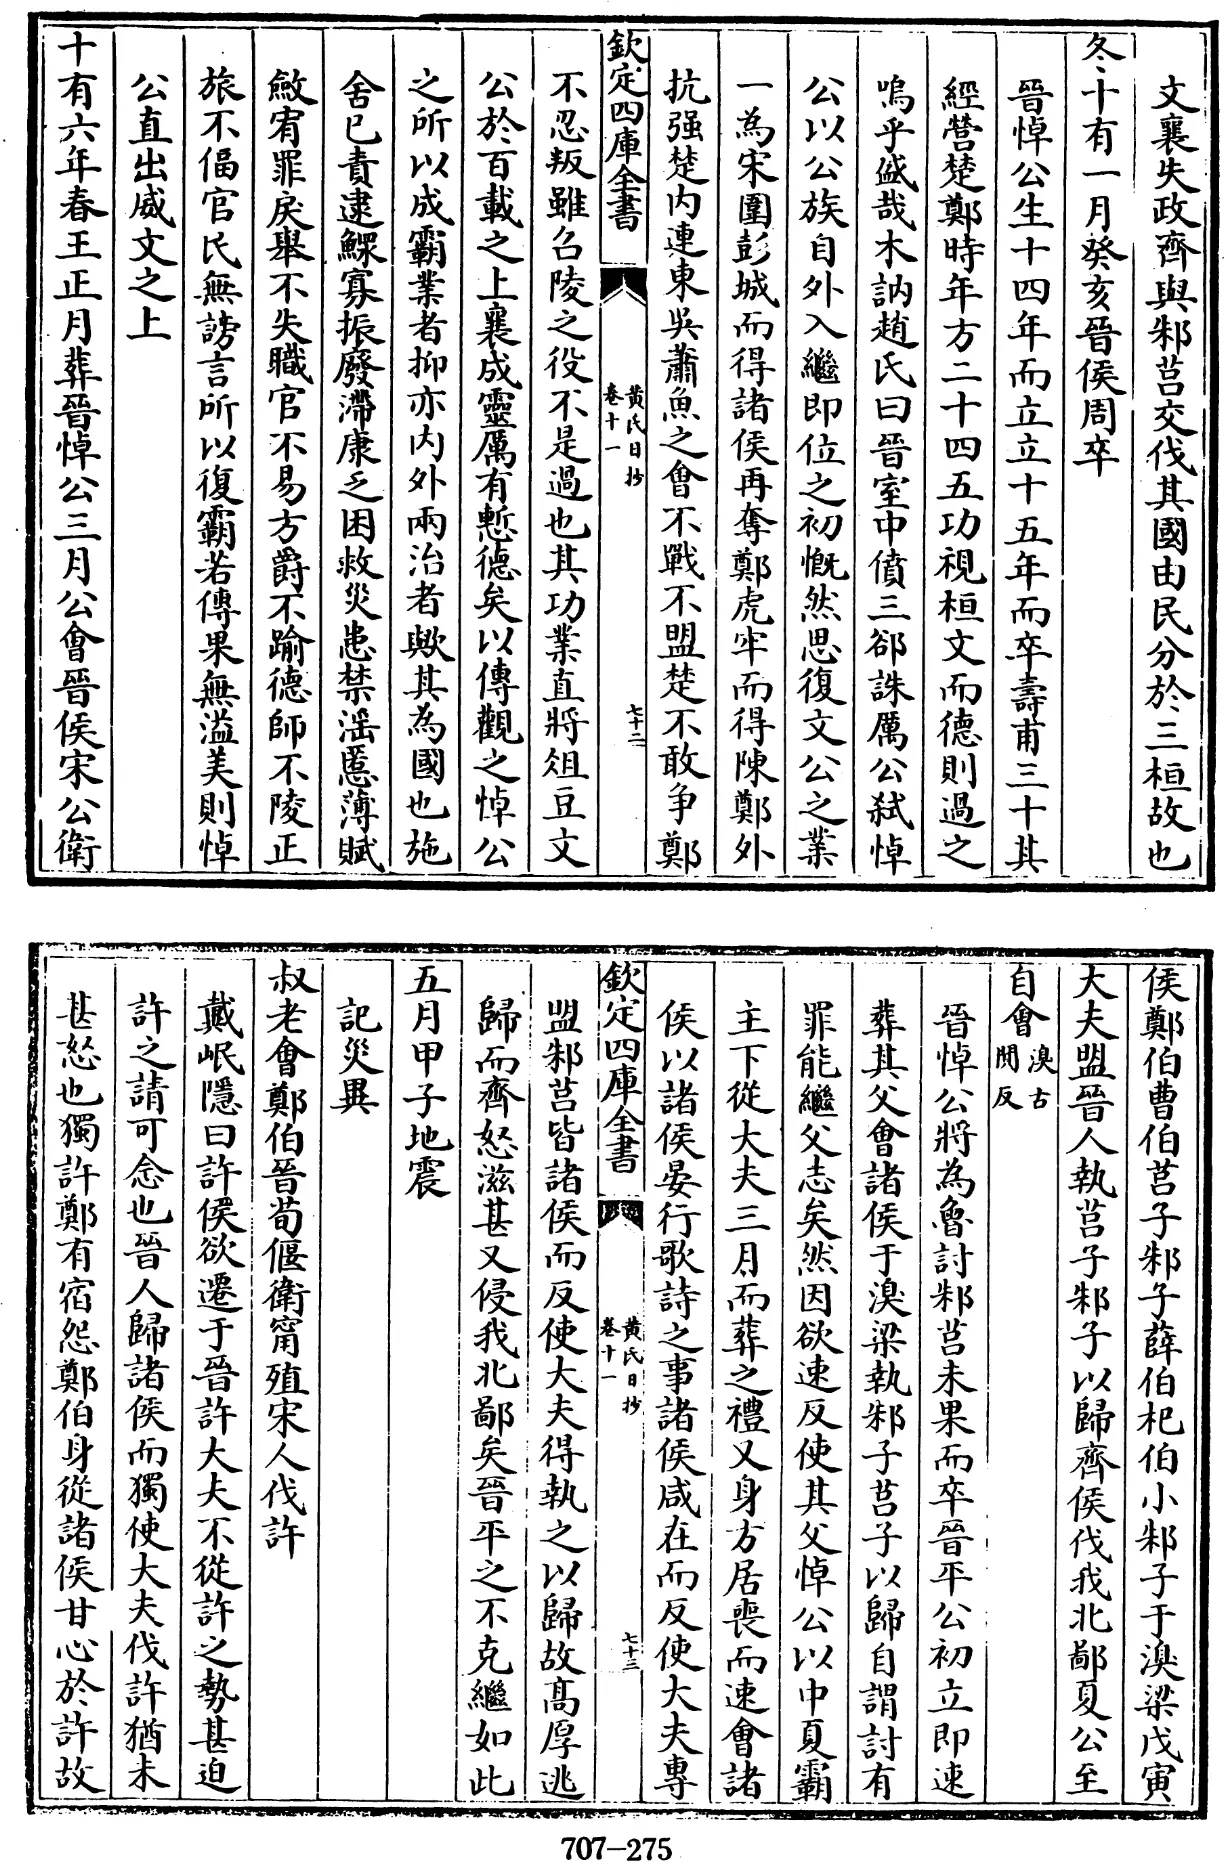 文襄失政齊與邾莒交伐其國由民分於三桓故也
冬十有一月癸亥晉侯周卒
晉悼公生十四年而立立十五年而卒壽甫三十其
經營楚鄭時年方二十四五功視桓文而德則過之
嗚乎盛哉木訥趙氏曰晉室中債三郤誅厲公弑悼
公以公族自外入繼即位之初慨然思復文公之業
一為宋圍彭城而得諸侯再奪鄭虎牢而得陳鄭外
抗强楚内連東吳蕭魚之會不戰不盟楚不敢争鄭
欽定四庫全書
黄氏日抄
卷十一
七十二
不忍叛雖召陵之役不是過也其功業直將俎豆文
公於百載之上襄成靈厲有慙德矣以傳觀之悼公
之所以成霸業者抑亦内外兩治者歟其為國也施
舍已責逮鰥寡振廢滯康乏困救災患禁滛慝薄賦
斂宥罪戾舉不失職官不易方爵不踰德師不陵正
旅不偪官民無謗言所以復霸若傳果無溢美則悼
公直出威文之上
十有六年春王正月葬晉悼公三月公會晉侯宋公衛
侯鄭伯曹伯莒子邾子薛伯杞伯小邾子于溴梁戊寅
大夫盟晉人執莒子邾子以歸齊侯伐我北鄙夏公至
自會溴古
閴反
晉悼公將為魯討邾莒未果而卒晉平公初立即速
葬其父會諸侯于溴梁執邾子莒子以歸自謂討有
罪能繼父志矣然因欲速反使其父悼公以中夏霸
主下從大夫三月而葬之禮又身方居喪而速會諸
侯以諸侯晏行歌詩之事諸侯咸在而反使大夫專
欽定四庫全書
黄氏日抄
卷十一
七十三
盟邾莒皆諸侯而反使大夫得執之以歸故髙厚逃
歸而齊怒滋甚又侵我北鄙矣晉平之不克繼如此
五月甲子地震
記災異
叔老會鄭伯晉荀偃衛甯殖宋人伐許
戴岷隱曰許侯欲遷于晉許大夫不從許之勢甚迫
許之請可念也晉人歸諸侯而獨使大夫伐許猶未
甚怒也獨許鄭有宿怨鄭伯身從諸侯甘心於許故
707-275